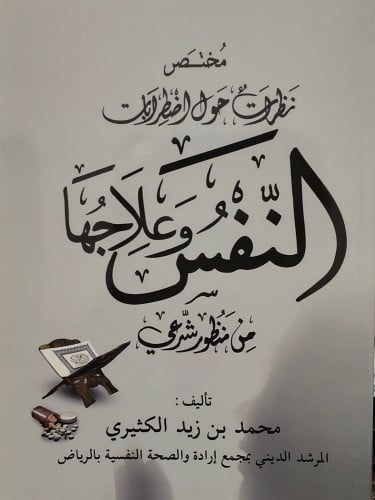 مختصر
نَظَراتٌ حَول اضْطِرابات
النَّفْسُ وَعِلَاجُهَا
مِن مَنْظُورٍ شَرْعِي
تأليف :
محمد بن زيد الكثيري
المرشد الديني بمجمع إرادة والصحة النفسية بالرياض